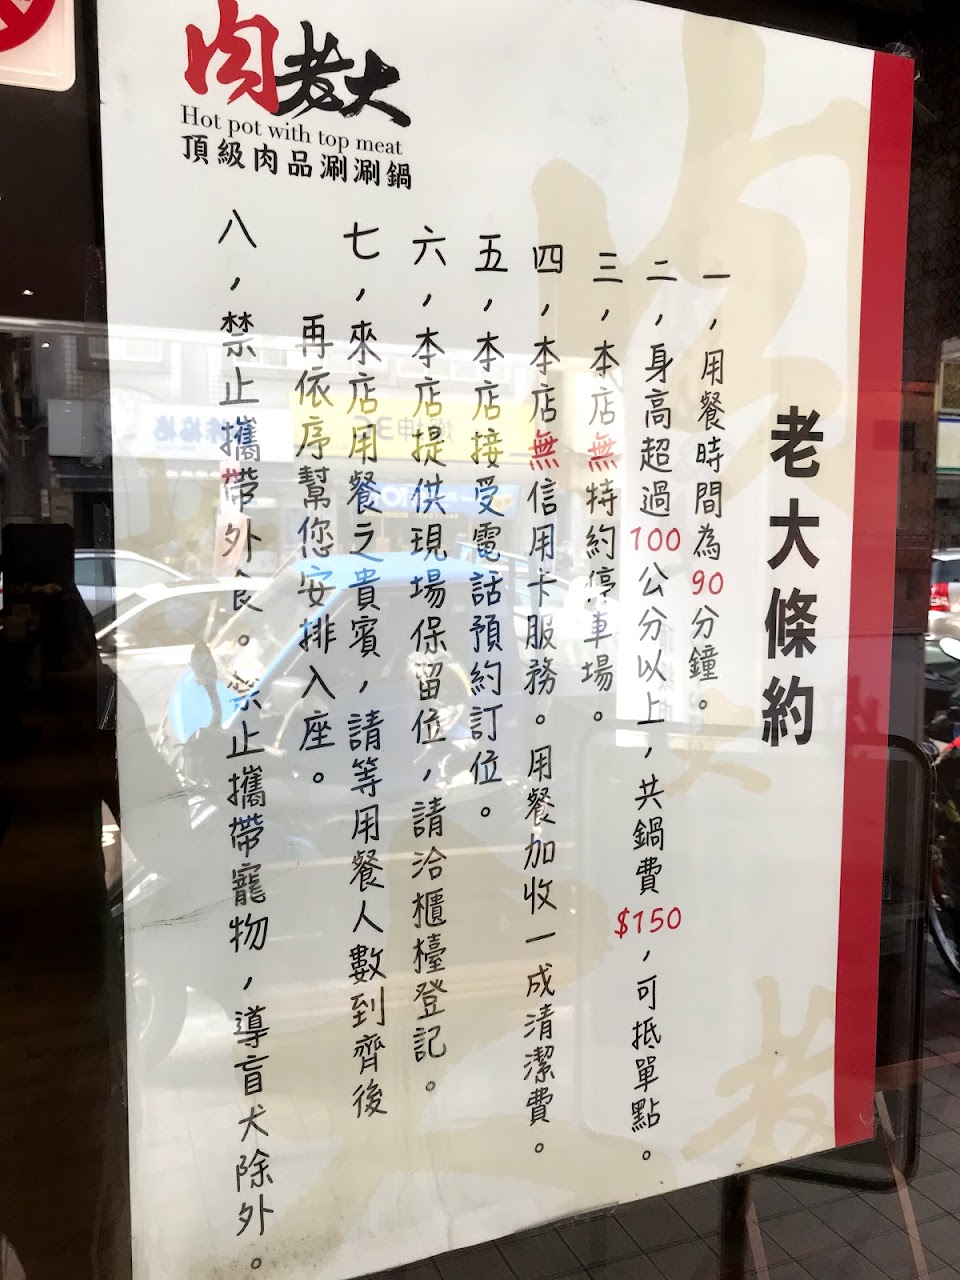 肉老大
Hot pot with top meat
頂級肉品涮涮鍋
老大條約
一，用餐時間為90分鐘。
二，身高超過100公分以上，共鍋費$150，可抵單點。
三，本店無特約停車場。
四，本店無信用卡服務。用餐加收一成清潔費。
五，本店接受電話預約訂位。
六，本店提供現場保留位，請洽櫃檯登記。
七，來店用餐之貴賓，請等用餐人數到齊後
再依序幫您安排入座。
八，禁止攜帶外食。禁止攜帶寵物，導盲犬除外。